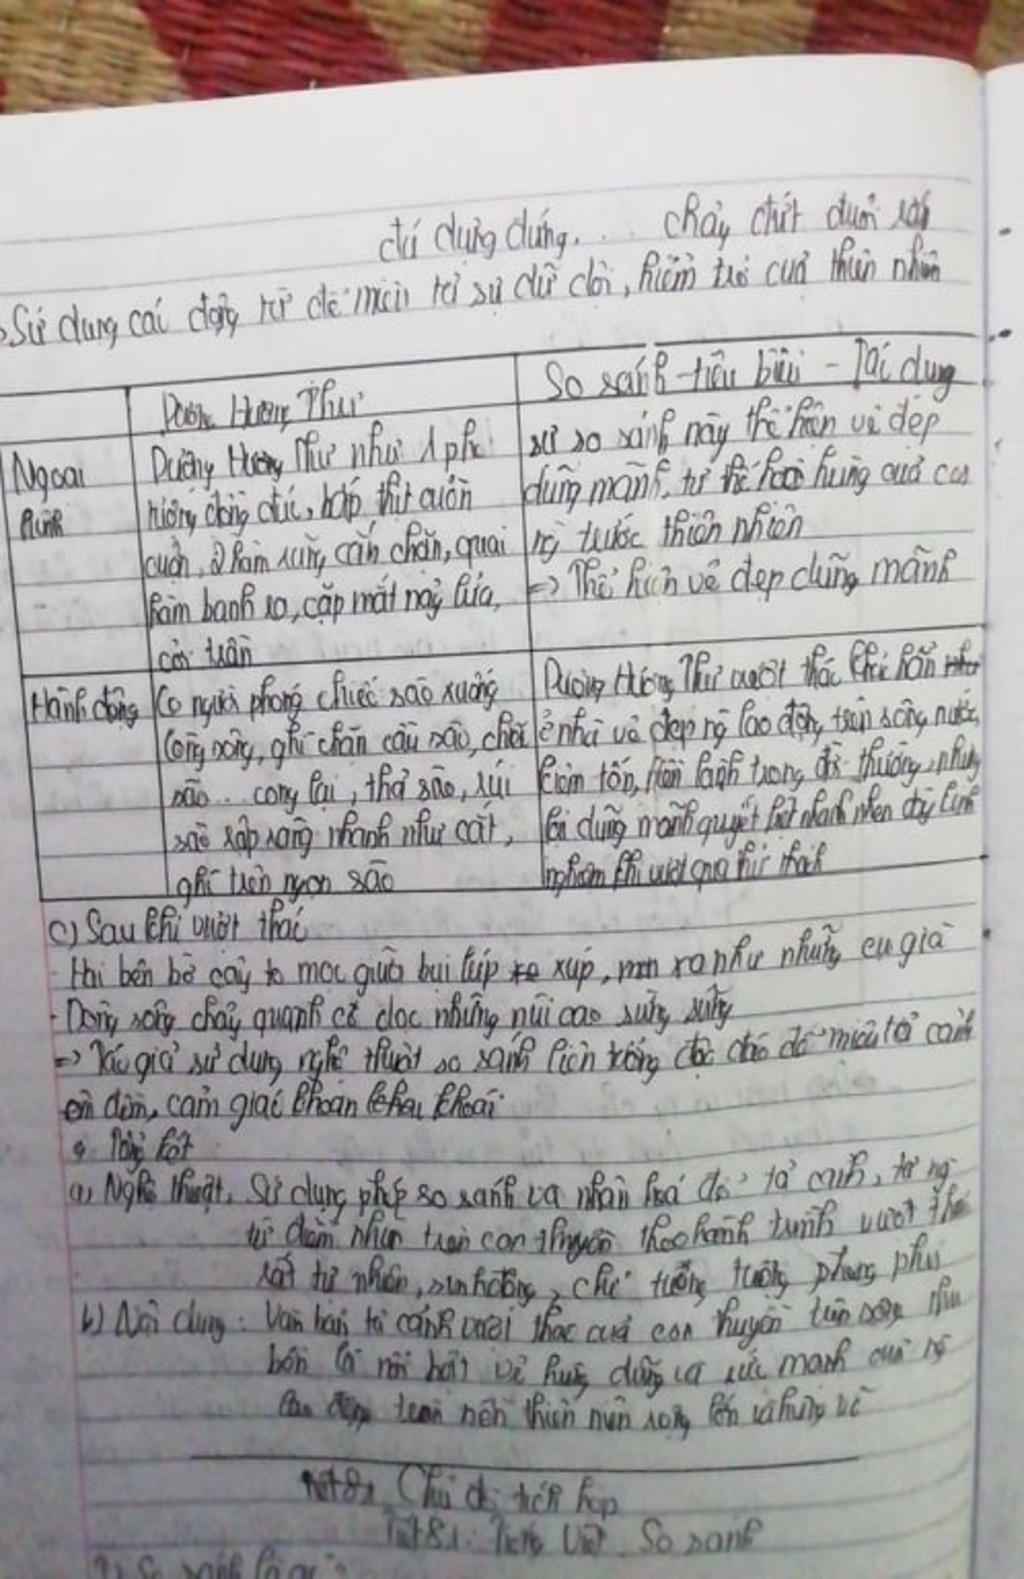 đứ dựng đứng... chảy đứt đuôi rắn
Sử dụng các động từ để miêu tả sự dữ dội, hiểm trở của thiên nhiên
Dượng Hương Thư
So sánh - tiêu biểu - Tác dụng
Ngoại hình
Dượng Hương Thư như 1 pho
tượng đồng đúc, bắp thịt cuồn
cuộn, 2 hàm răng cắn chặn, quai
hàm banh ra, cặp mắt nảy lửa,
cởi trần
sự so sánh này thể hiện vẻ đẹp
dũng mãnh, tư thế hào hùng của con
ng trước thiên nhiên
=> Thể hiện vẻ đẹp dũng mãnh
Hành động
Co người phóng chiếc sào xuống
lòng sông, ghì chặn đầu sào, chiếc
sào.. cong lại, thả sào, rút
sào rập ràng nhanh như cắt,
ghì trên ngọn sào
Dượng Hương Thư vượt thác khác hẳn
ở nhà vẻ đẹp ng lao động trên sông nước,
khiêm tốn, hiền lành trong đời thường, nhưng
lại dũng mãnh quyết liệt nhanh nhẹn đầy kinh
nghiệm khi vượt qua thử thách
c) Sau khi vượt thác
- Hai bên bờ cây to mọc giữa bụi lúp xúp, ra như những cụ già
- Dòng sông chảy quanh co dọc những núi cao sừng sững
=> Tác giả sử dụng nghệ thuật so sánh độc đáo để miêu tả cảnh
êm đềm, cảm giác khoan khoái
Tổng kết
a) Nghệ thuật, Sử dụng phép so sánh và nhân hoá để tả cảnh, tả ng
từ điểm nhìn trên con thuyền theo hành trình vượt thác
rất tự nhiên, sinh động, chí tưởng tượng phong phú
b) Nội dung: Văn bản tả cảnh vượt thác của con thuyền trên sông thu
bồn nổi bật vẻ hùng dũng và sức mạnh của ng
lao động trên nền thiên nhiên rộng lớn và hùng vĩ
Chủ đề tích hợp
Tiết 81: Tiếng Việt So sánh
So sánh là gì